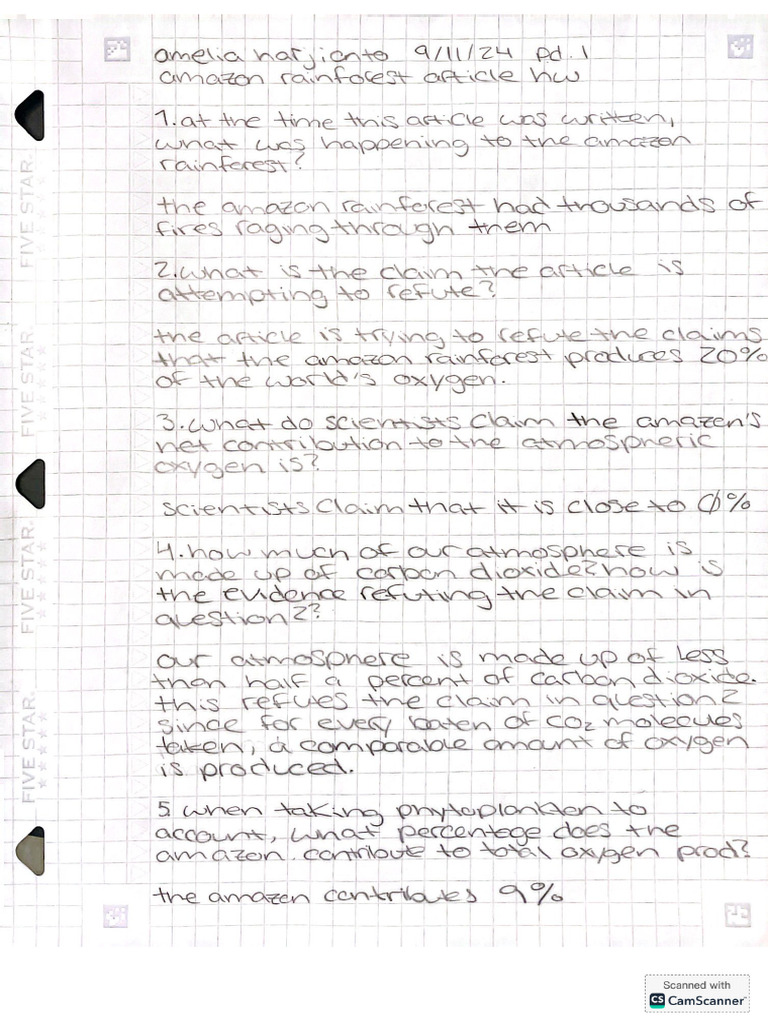 amelia harjianto 9/11/24 pd. 1
amazon rainforest article hw
1. at the time this article was written,
what was happening to the amazon
rainforest?
the amazon rainforest had thousands of
fires raging through them
2. what is the claim the article is
attempting to refute?
the article is trying to refute the claims
that the amazon rainforest produces 20%
of the world's oxygen.
3. what do scientists claim the amazon's
net contribution to the atmospheric
oxygen is?
scientists claim that it is close to 0%
4. how much of our atmosphere is
made up of carbon dioxide? how is
the evidence refuting the claim in
question 2?
our atmosphere is made up of less
then half a percent of carbon dioxide.
this refues the claim in question 2
since for every baten of CO2 molecues
taken, a comparable amount of oxygen
is produced.
5 when taking phytoplankten to
account, what percentege does the
amazon contribute to total oxygen prod?
the amazon contributes 9%
FIVE STAR
FIVE STAR
FIVE STAR
FIVE STAR
Scanned with
CS CamScanner